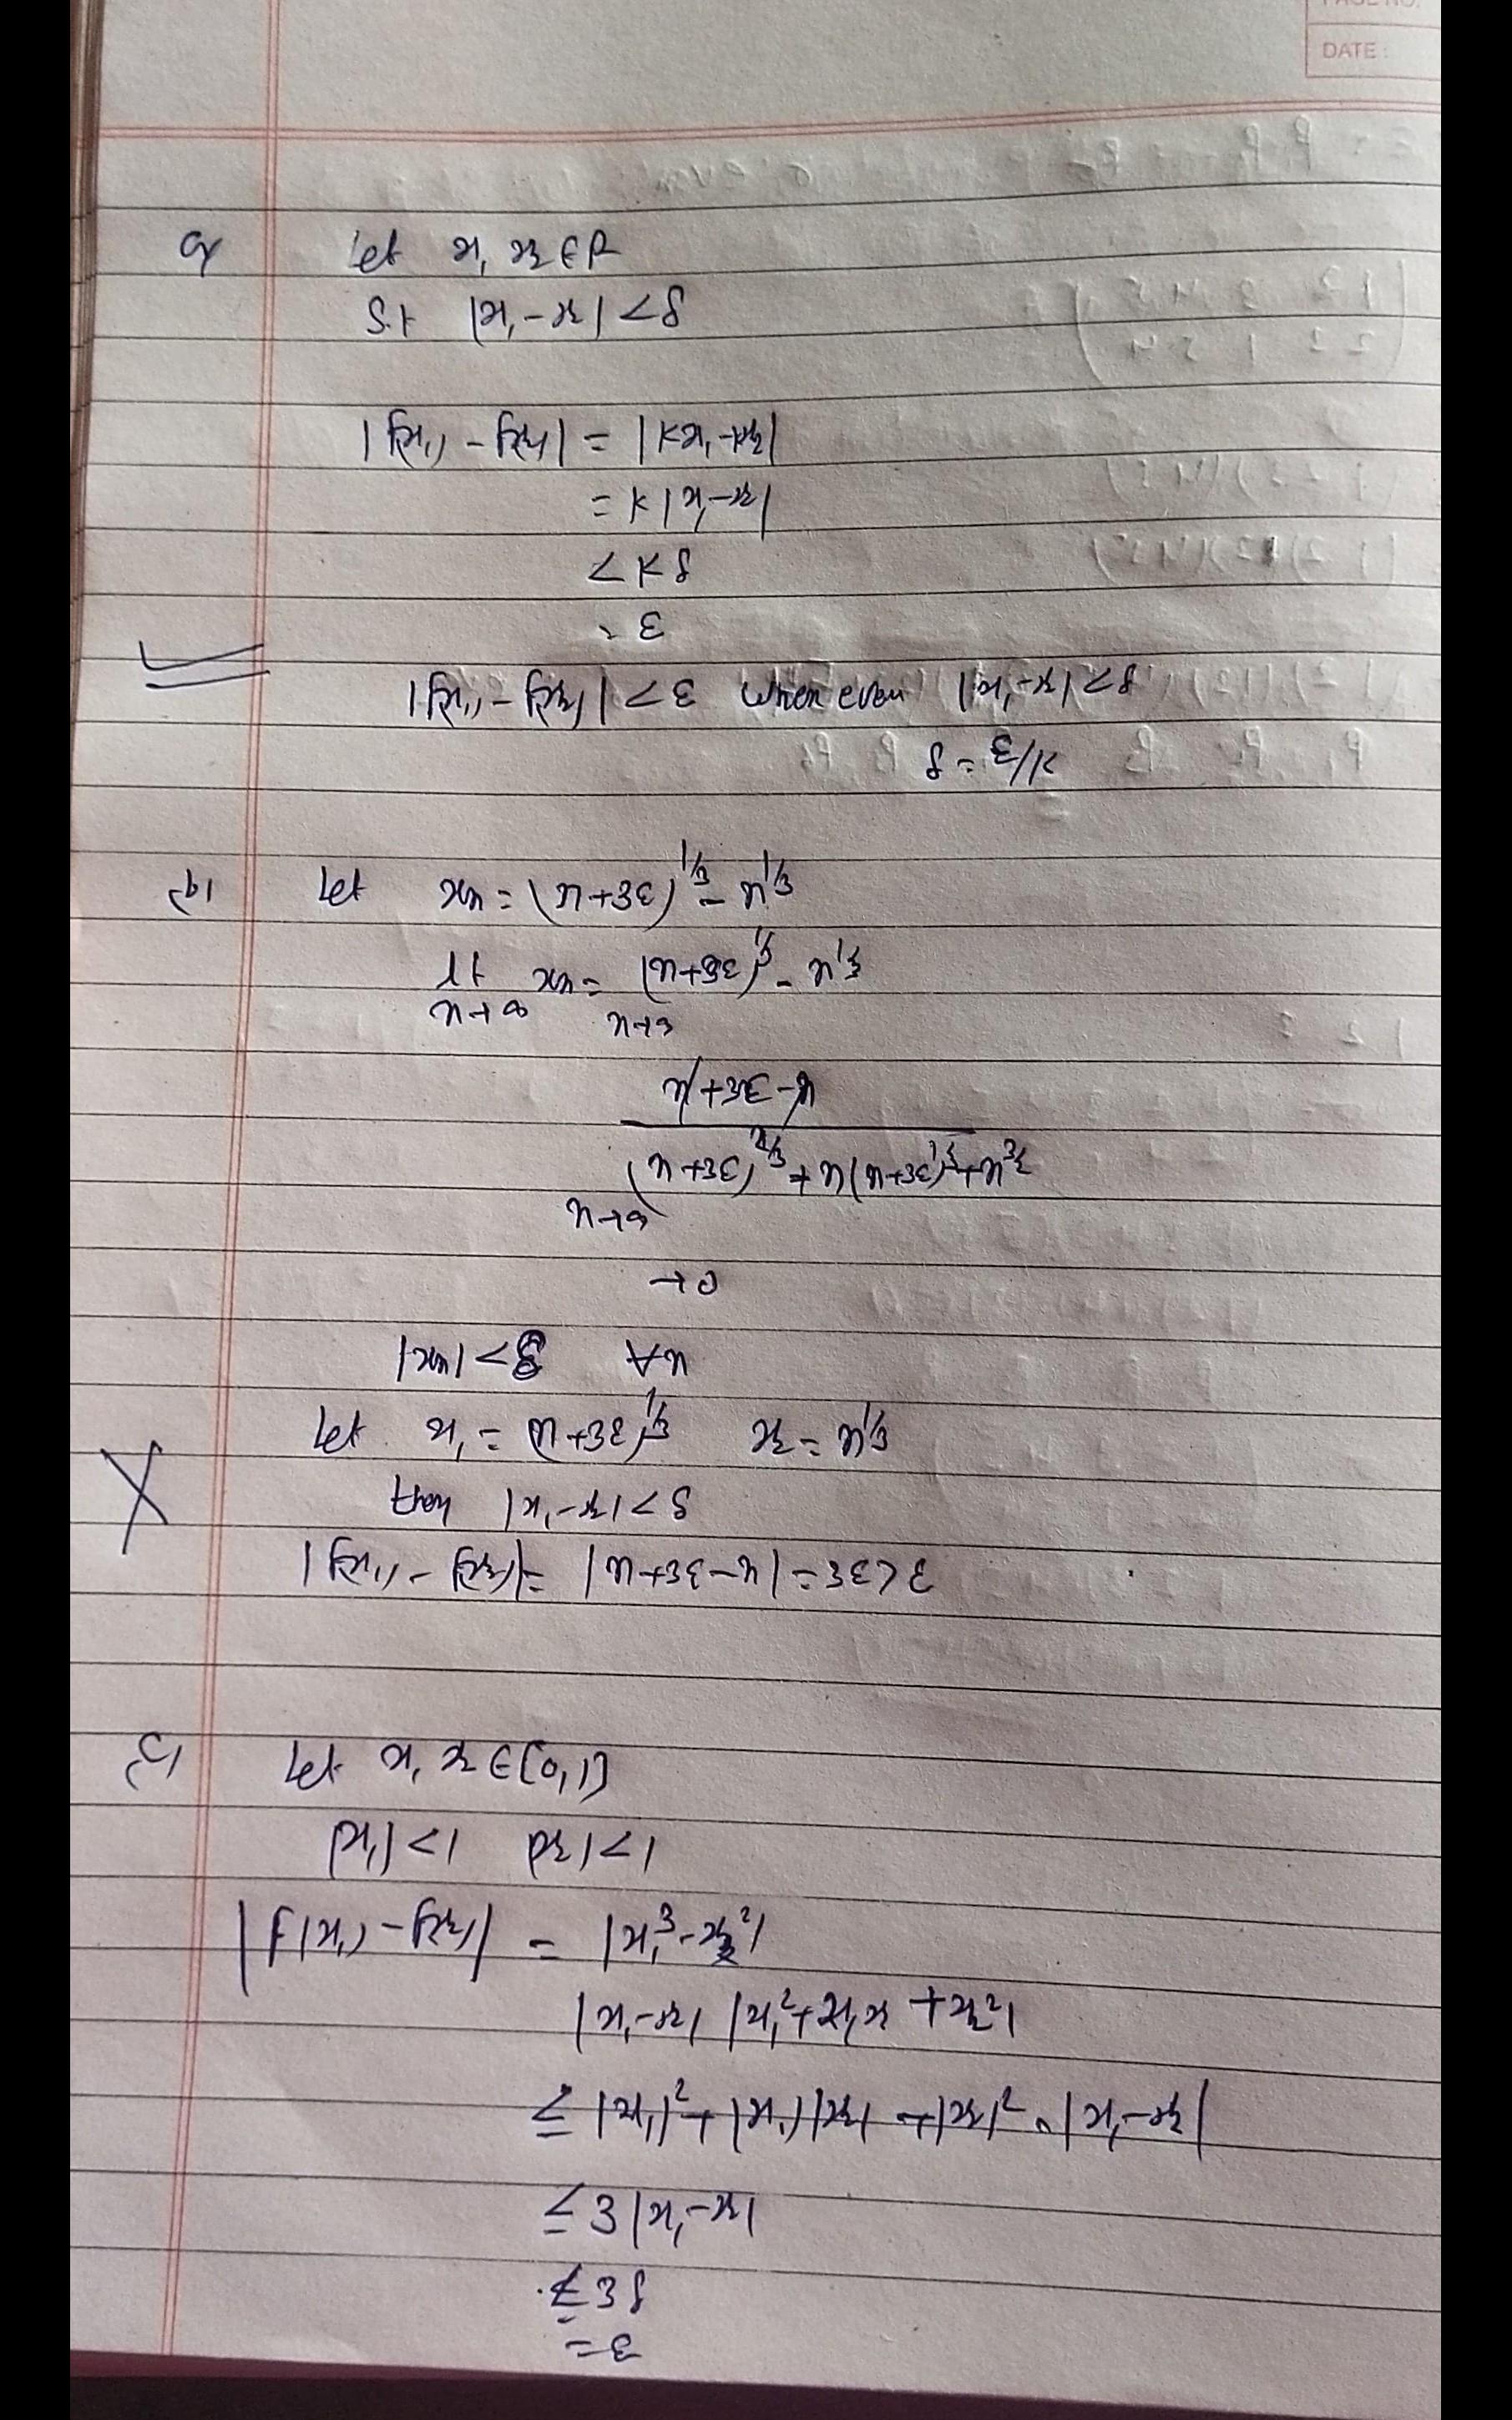 PAGE NO.
DATE :
a) Let x₁, x₂ ∈ R
S.t |x₁ - x₂| < δ
|f(x₁) - f(x₂)| = |kx₁ - kx₂|
= k |x₁ - x₂|
< k δ
= ε
|f(x₁) - f(x₂)| < ε when ever |x₁ - x₂| < δ
δ = ε/k
b) Let xn = (n+3ε)^1/3 - n^1/3
lt xn = (n+3ε)^1/3 - n^1/3
n→∞ n→∞
n+3ε-n
(n+3ε)^2/3 + n(n+3ε)^1/3 + n^2/3
n→∞
→0
|xn| < δ ∀n
Let x₁ = (n+3ε)^1/3 x₂ = n^1/3
then |x₁ - x₂| < δ
|f(x₁) - f(x₂)| = |n+3ε-n| = 3ε > ε
c) Let x₁, x₂ ∈ [0,1]
|x₁| < 1 |x₂| < 1
|f(x₁) - f(x₂)| = |x₁³ - x₂²|
|x₁ - x₂| |x₁² + x₁x₂ + x₂²|
≤ |x₁|² + |x₁||x₂| + |x₂|² . |x₁ - x₂|
≤ 3 |x₁ - x₂|
≤ 3δ
= ε